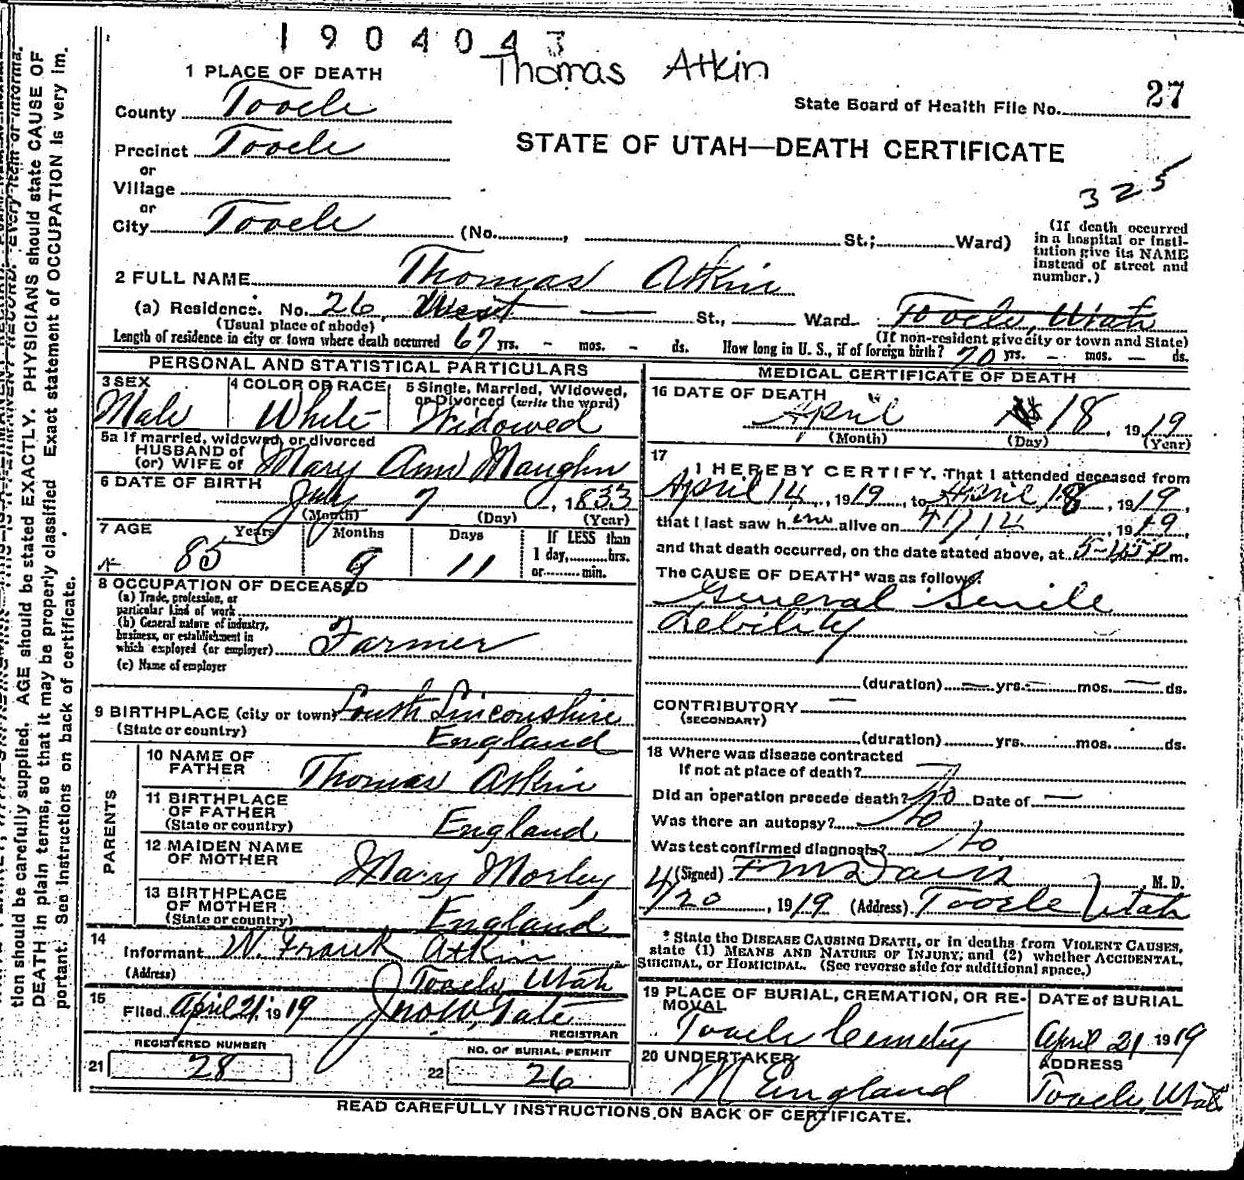 1904043
Thomas Atkin
27
1 PLACE OF DEATH
State Board of Health File No.
County Tooele
STATE OF UTAH—DEATH CERTIFICATE
Precinct Tooele
or
Village
325
or
City Tooele (No. , St.; Ward)
(If death occurred in a hospital or institution give its NAME instead of street and number.)
2 FULL NAME Thomas Atkin
(a) Residence. No. 26, West — St., Ward. Tooele, Utah
(Usual place of abode) (If non-resident give city or town and State)
Length of residence in city or town where death occurred 67 yrs. - mos. - ds. How long in U. S., if of foreign birth? 70 yrs. - mos. — ds.
PERSONAL AND STATISTICAL PARTICULARS
3 SEX Male
4 COLOR OR RACE White
5 Single, Married, Widowed, or Divorced (write the word) Widowed
5a If married, widowed, or divorced
HUSBAND of
(or) WIFE of Mary Ann Maughn
6 DATE OF BIRTH July 7, 1833
(Month) (Day) (Year)
7 AGE Years Months Days If LESS than
85 9 11 1 day, hrs.
or min.
8 OCCUPATION OF DECEASED
(a) Trade, profession, or
particular kind of work
(b) General nature of industry,
business, or establishment in
which employed (or employer) Farmer
(c) Name of employer
9 BIRTHPLACE (city or town) South Linconshire
(State or country) England
PARENTS
10 NAME OF FATHER Thomas Atkin
11 BIRTHPLACE OF FATHER (State or country) England
12 MAIDEN NAME OF MOTHER Mary Morley
13 BIRTHPLACE OF MOTHER (State or country) England
14 Informant W. Frank Atkin
(Address) Tooele, Utah
15 Filed April 21, 1919 Jno W. Tate
REGISTRAR
REGISTERED NUMBER
21 28
NO. OF BURIAL PERMIT
22 26
MEDICAL CERTIFICATE OF DEATH
16 DATE OF DEATH
April 18, 1919
(Month) (Day) (Year)
17 I HEREBY CERTIFY, That I attended deceased from
April 14, 1919, to April 18, 1919,
that I last saw him alive on 4/14, 1919,
and that death occurred, on the date stated above, at m.
The CAUSE OF DEATH* was as follows:
General Senile
debility
(duration) — yrs. — mos. — ds.
CONTRIBUTORY —
(SECONDARY)
(duration) yrs. mos. ds.
18 Where was disease contracted
If not at place of death?
Did an operation precede death? No Date of —
Was there an autopsy? No
Was test confirmed diagnosis? No
(Signed) F M Davis M. D.
4/20, 1919 (Address) Tooele Utah
* State the DISEASE CAUSING DEATH, or in deaths from VIOLENT CAUSES,
state (1) MEANS AND NATURE OF INJURY; and (2) whether ACCIDENTAL,
SUICIDAL, or HOMICIDAL. (See reverse side for additional space.)
19 PLACE OF BURIAL, CREMATION, OR REMOVAL
Tooele Cemetry
DATE of BURIAL
April 21 1919
20 UNDERTAKER
M England
ADDRESS
Tooele, Utah
READ CAREFULLY INSTRUCTIONS ON BACK OF CERTIFICATE.
tion should be carefully supplied. AGE should be stated EXACTLY. PHYSICIANS should state CAUSE OF
DEATH in plain terms, so that it may be properly classified. Exact statement of OCCUPATION is very im.
portant. See instructions on back of certificate.